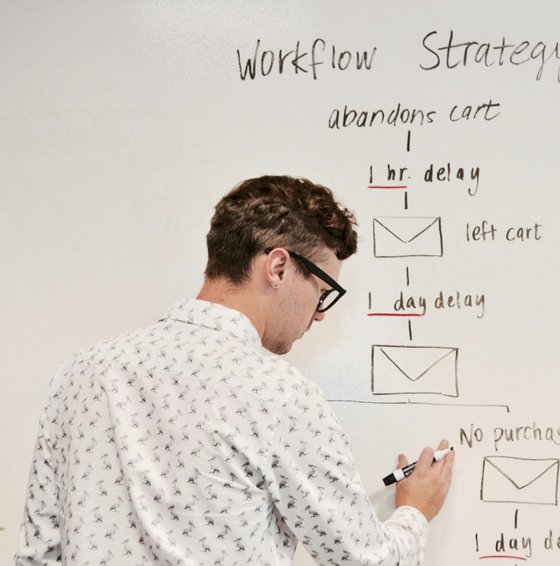 Workflow Strategy
abandons cart
1 hr. delay
left cart
1 day delay
No purchas
1 day de